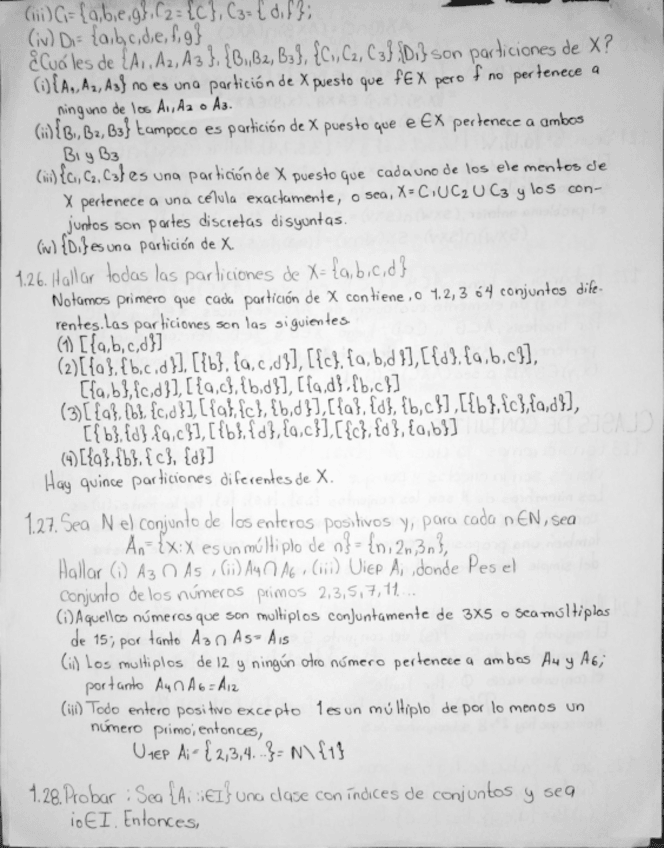 (iii) C₁= {a,b,e,g}, C₂= {C}, C₃= {d,f};
(iv) D₁= {a,b,c,d,e,f,g}
¿Cuáles de {A₁, A₂, A₃}, {B₁, B₂, B₃}, {C₁, C₂, C₃} {D₁} son particiones de X?
(i) {A₁, A₂, A₃} no es una partición de X puesto que f∈X pero f no pertenece a
ninguno de los A₁, A₂ o A₃.
(ii) {B₁, B₂, B₃} tampoco es partición de X puesto que e∈X pertenece a ambos
B₁ y B₃
(iii) {C₁, C₂, C₃} es una partición de X puesto que cada uno de los elementos de
X pertenece a una célula exactamente, o sea, X= C₁∪C₂∪C₃ y los con-
juntos son partes discretas disyuntas.
(iv) {D₁} es una partición de X.
1.26. Hallar todas las particiones de X= {a,b,c,d}
Notamos primero que cada partición de X contiene, o 1, 2, 3 ó 4 conjuntos dife-
rentes. Las particiones son las siguientes
(1) [{a,b,c,d}]
(2) [{a}, {b,c,d}], [{b}, {a,c,d}], [{c}, {a,b,d}], [{d}, {a,b,c}],
[{a,b}, {c,d}], [{a,c}, {b,d}], [{a,d}, {b,c}]
(3) [{a}, {b}, {c,d}], [{a}, {c}, {b,d}], [{a}, {d}, {b,c}], [{b}, {c}, {a,d}],
[{b}, {d}, {a,c}], [{b}, {d}, {a,c}], [{c}, {d}, {a,b}]
(4) [{a}, {b}, {c}, {d}]
Hay quince particiones diferentes de X.
1.27. Sea N el conjunto de los enteros positivos y, para cada n∈N, sea
Aₙ= {x: x es un múltiplo de n} = {n, 2n, 3n},
Hallar (i) A₃ ∩ A₅, (ii) A₄ ∩ A₆, (iii) ∪i∈P Aᵢ, donde P es el
conjunto de los números primos 2,3,5,7,11...
(i) Aquellos números que son multiplos conjuntamente de 3X5 o sea múltiplos
de 15; por tanto A₃ ∩ A₅= A₁₅
(ii) Los multiplos de 12 y ningún otro número pertenece a ambos A₄ y A₆;
por tanto A₄ ∩ A₆ = A₁₂
(iii) Todo entero positivo excepto 1 es un múltiplo de por lo menos un
número primo; entonces,
∪i∈P Aᵢ= {2,3,4...}= N\{1}
1.28. Probar: Sea {Aᵢ : i∈I} una clase con índices de conjuntos y sea
i₀∈I. Entonces,